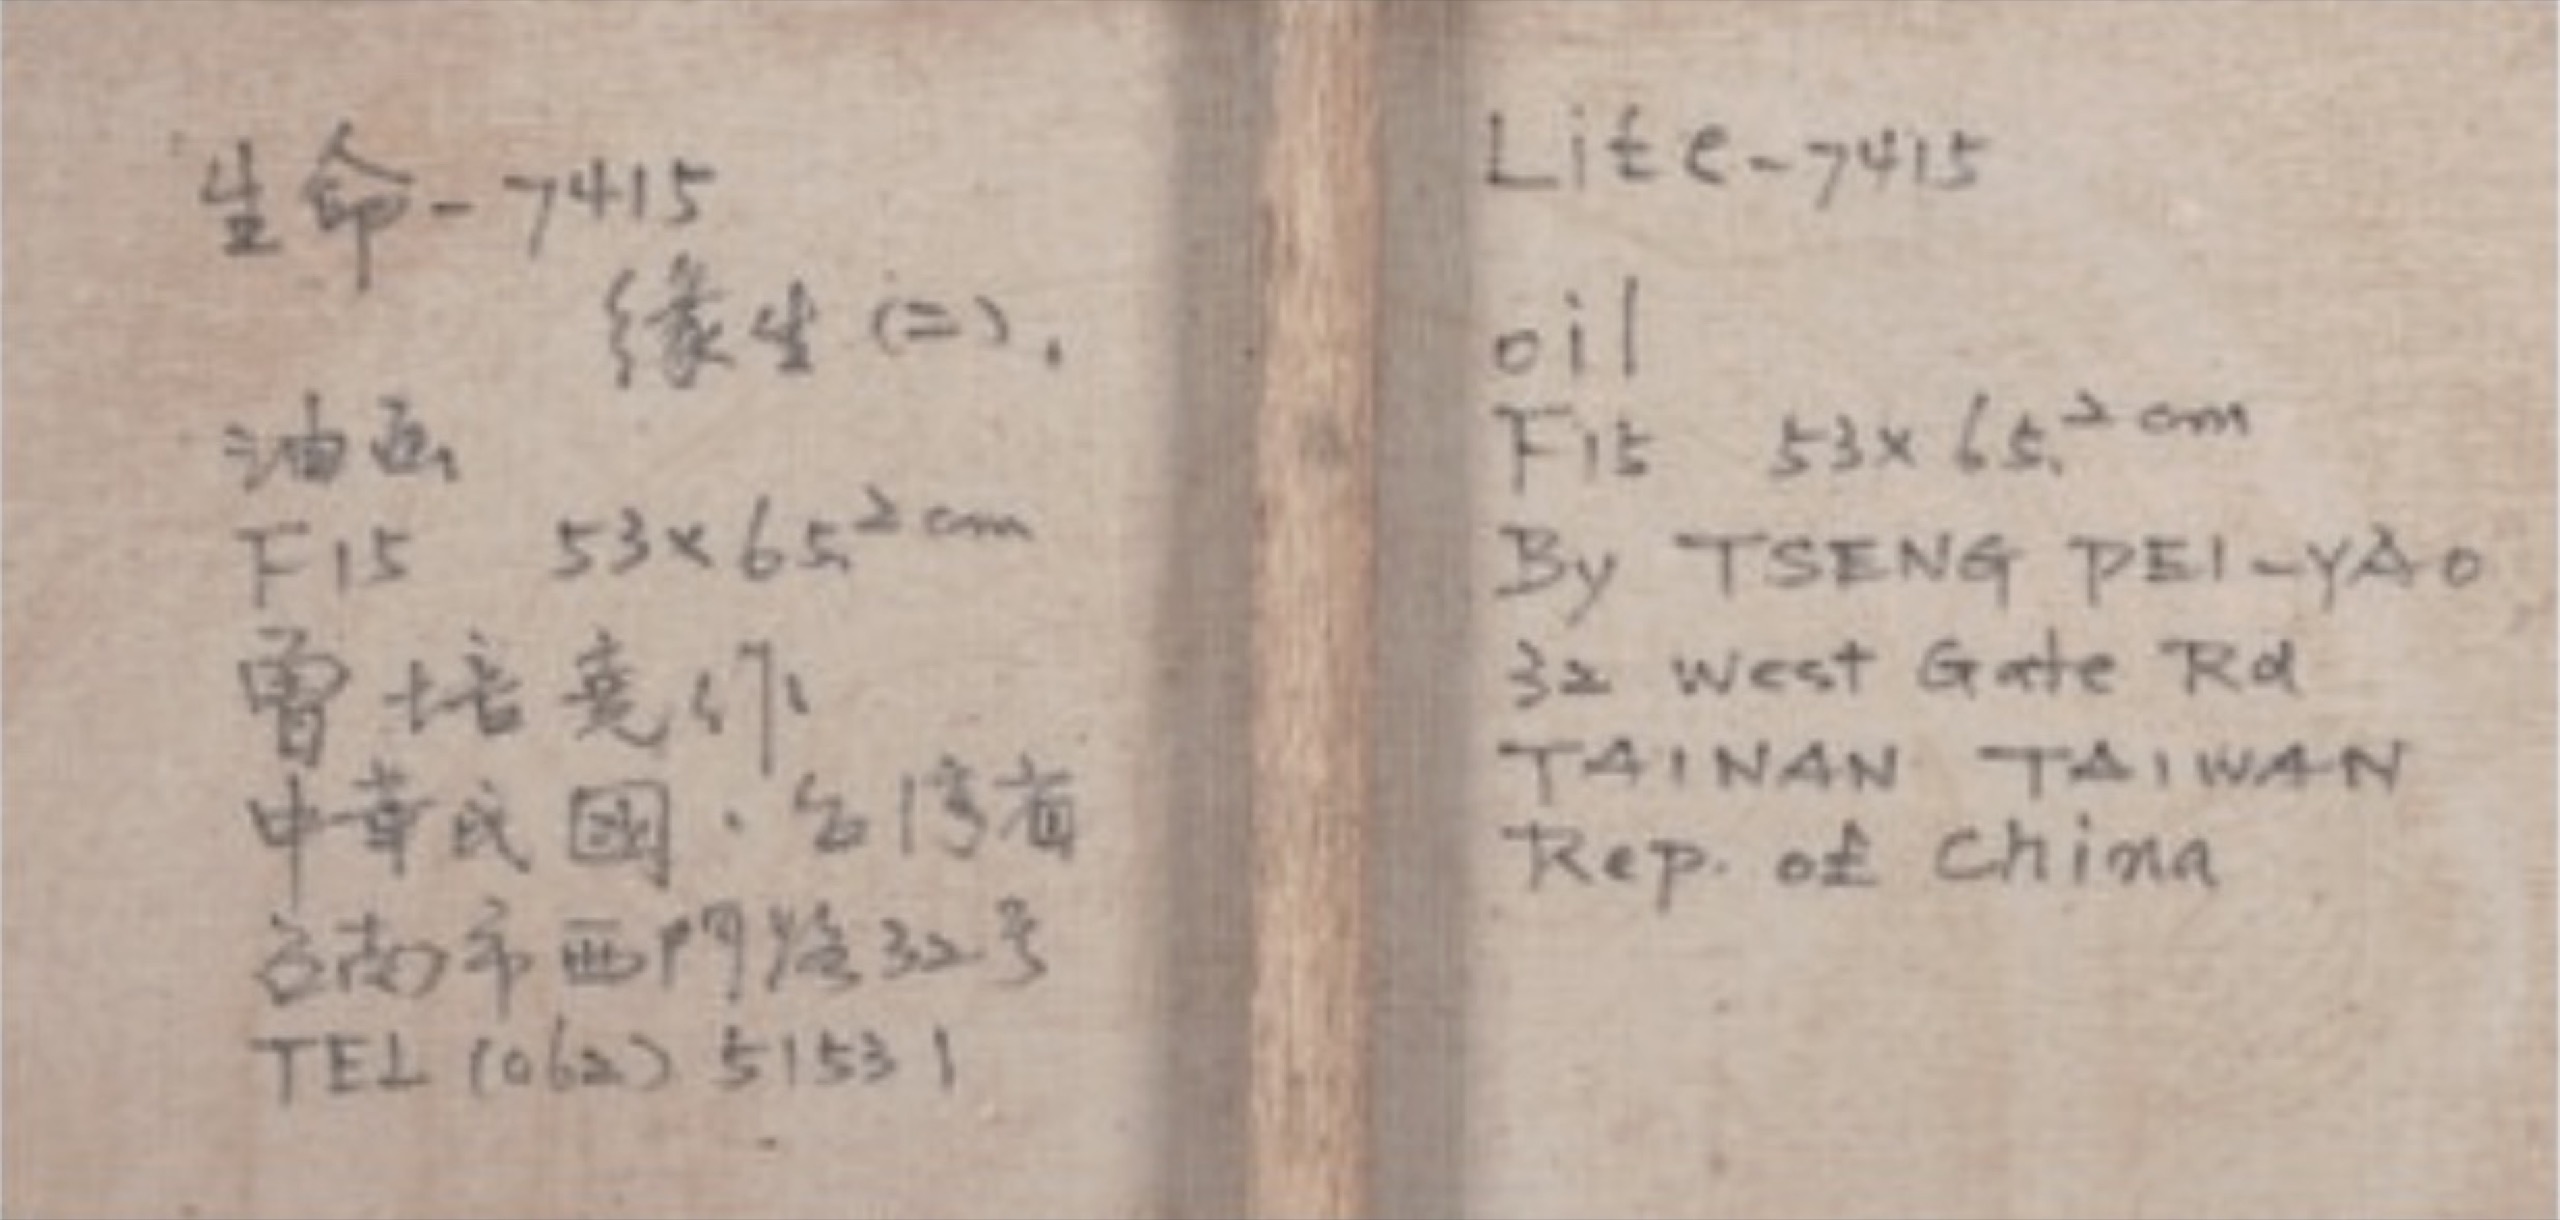 生命-7415
緣生(二).
油画
F15 53×65.2cm
曾培堯作
中華民國・台湾省
台南市西門路32号
TEL (062) 51531
Life-7415
oil
F15 53×65.2cm
By TSENG PEI-YAO
32 West Gate Rd
TAINAN TAIWAN
Rep. of China